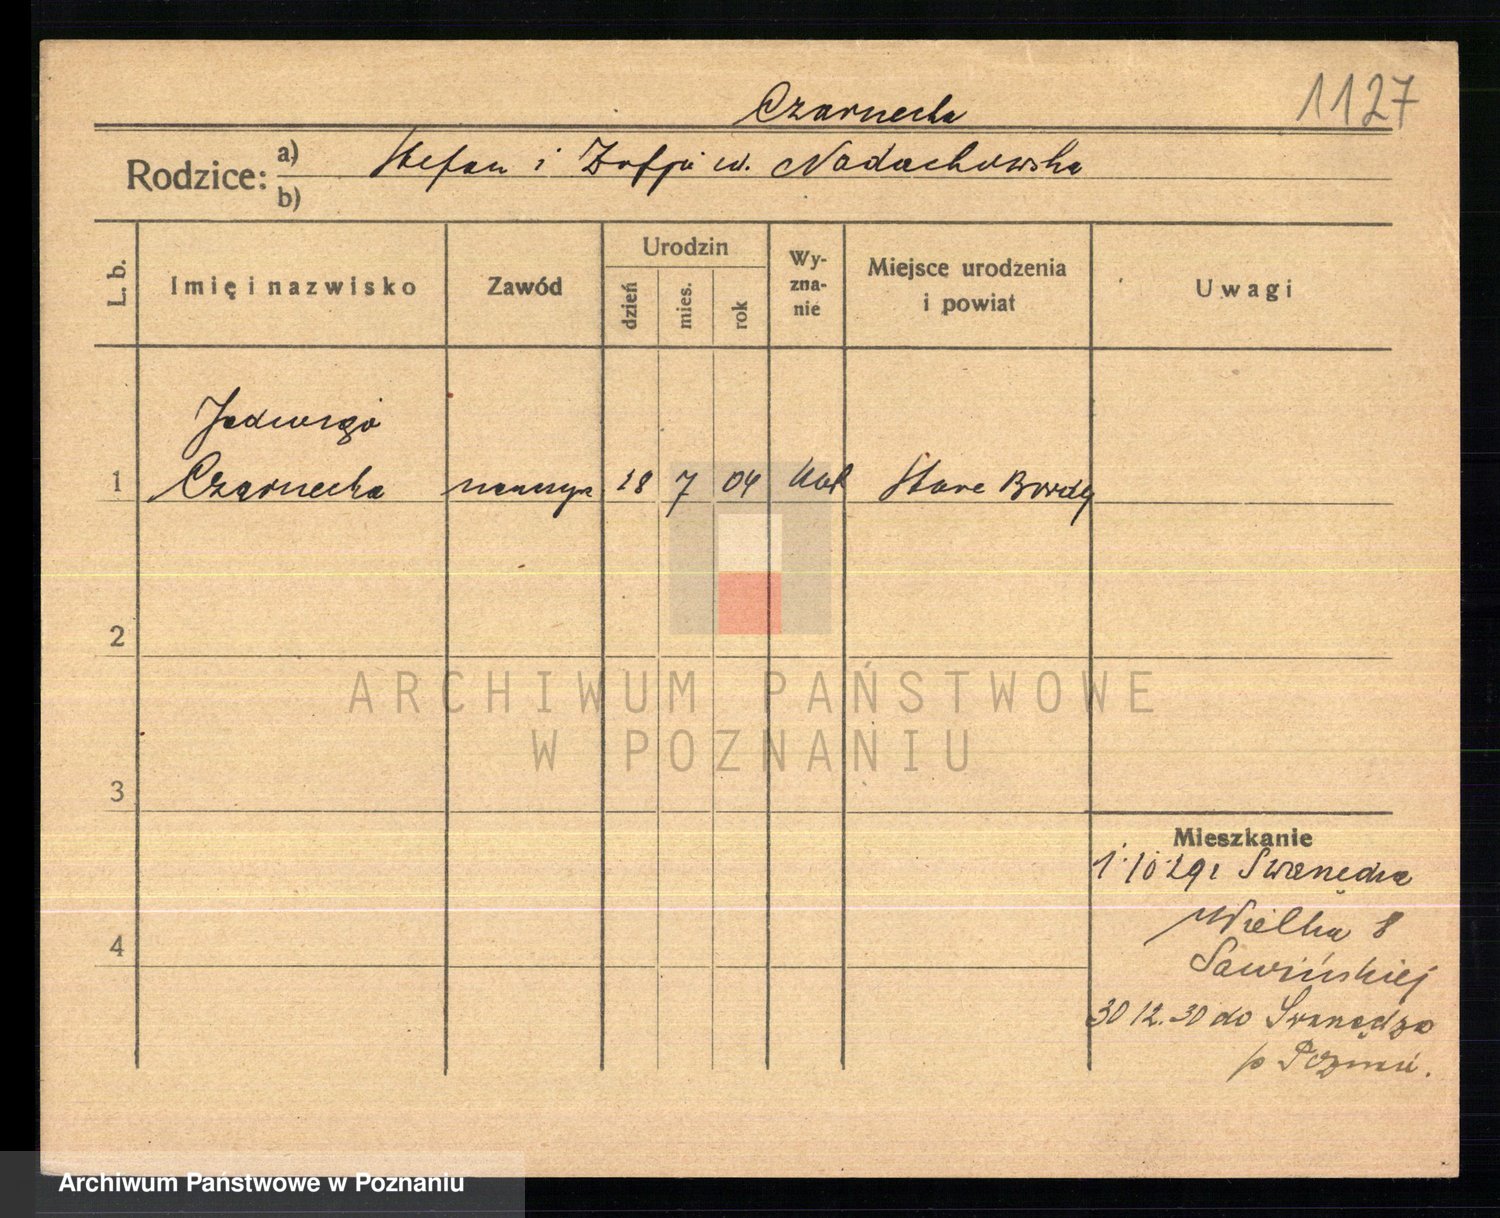 Czarnecka
1127
Rodzice: a) Stefan i Zofja ur. Nadachowska
b)
L. b.
Imię i nazwisko
Zawód
Urodzin
dzień
mies.
rok
Wy-
zna-
nie
Miejsce urodzenia
i powiat
Uwagi
Jadwiga
1 Czarnecka 18 7 04 kat Stare
2
ARCHIWUM PAŃSTWOWE
W POZNANIU
3
Mieszkanie
1.10.29
Wielka 8
4
30 12.30 do Swarzędza
p Pozn.
Archiwum Państwowe w Poznaniu